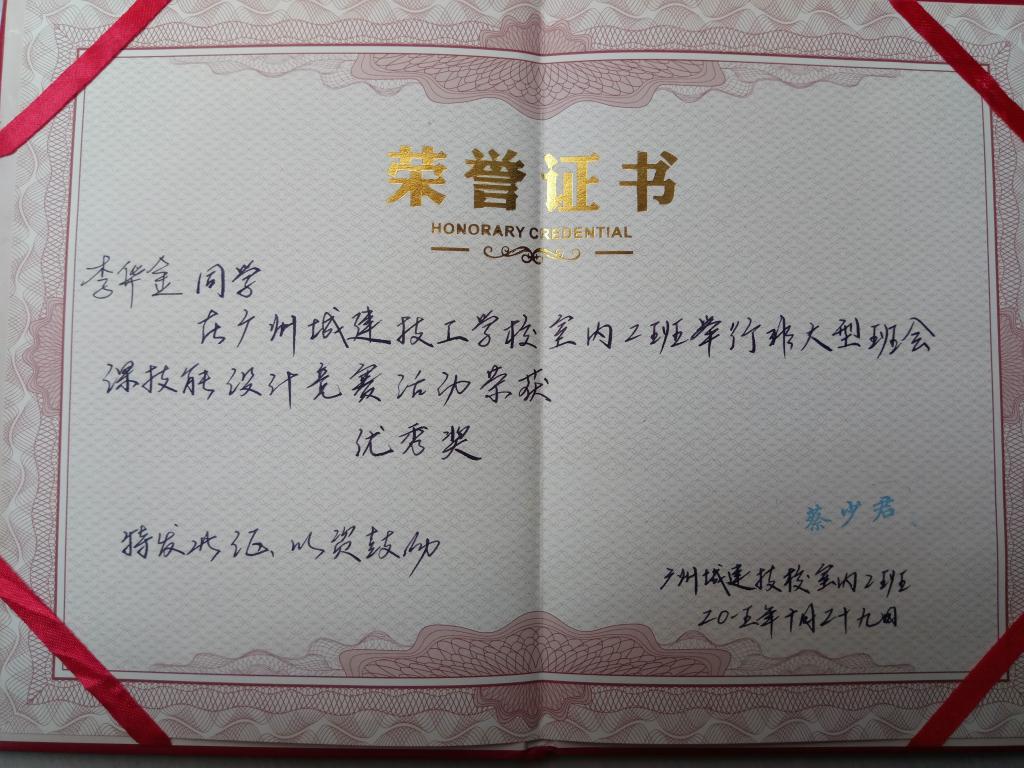 荣誉证书
HONORARY CREDENTIAL
李华金 同学
在广州城建技工学校室内2班举行非大型班会
课技能设计竞赛活动荣获
优秀奖
蔡少君
特发此证、以资鼓励
广州城建技校室内2班
二〇一五年十月二十九日